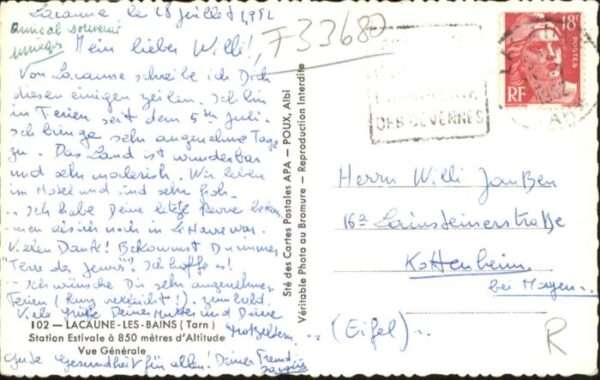 Lacaune le 18 Juillet 1952
Amical souvenir
Mein lieber Willi!,
F 33680
Von Lacaune schreibe ich Dich
diesen einigen Zeilen. Ich bin
in Ferien seit dem 5ten Juli.
Ich bringe sehr angenehme Tage
zu. Das Land ist wunderbar
und sehr malerisch. Wir leben
im Hotel und sind sehr froh.
.. Ich habe Deine letzte
noch in
Vielen Dank! Bekommst Du immer
"Terre des Jeunes"! Ich hoffe es!
- Ich wünsche Dir sehr angenehmen
Ferien
Viele Grüße Deiner Mutter und Deine
Gute Gesundheit für allen! Deiner Freund
102 — LACAUNE-LES-BAINS (Tarn)
Station Estivale à 850 mètres d'Altitude
Vue Générale
Sté des Cartes Postales APA — POUX, Albi
Véritable Photo au Bromure — Reproduction Interdite
DES CEVENNES
18F
POSTES
RF
Herrn Willi Janßen
Kottenheim
bei Mayen
(Eifel).
R